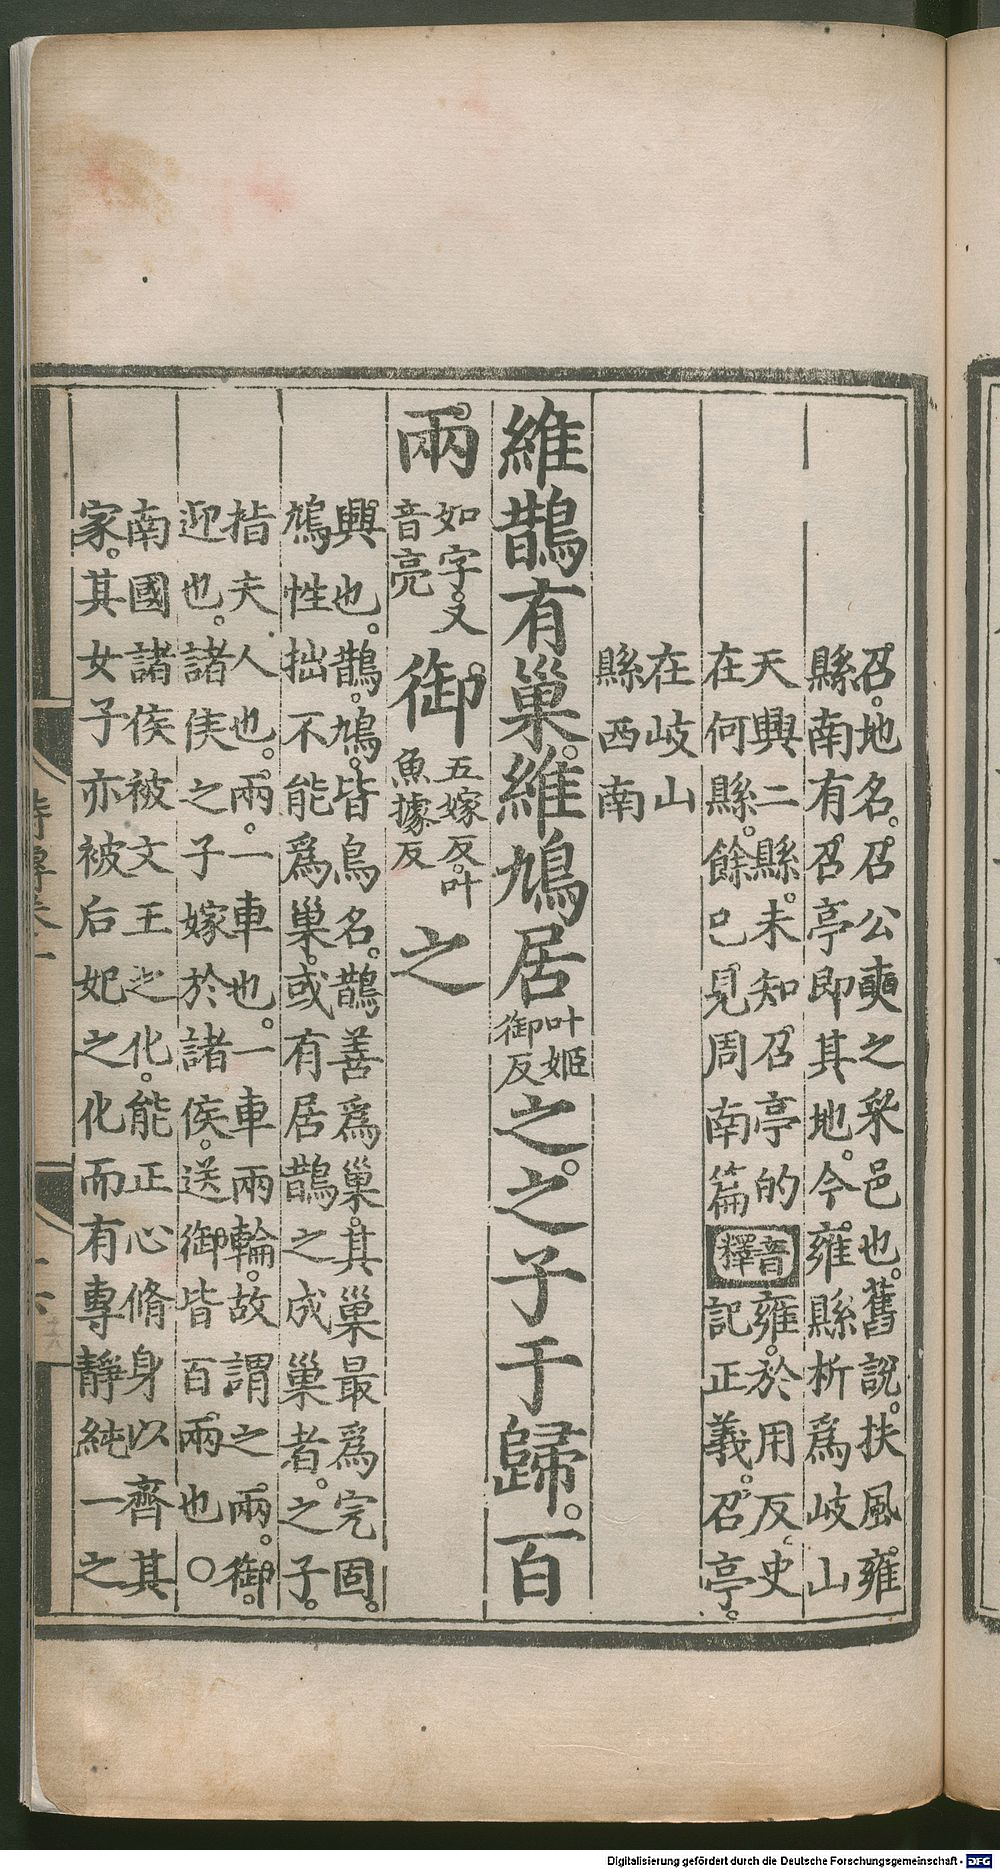 召。地名。召公奭之采邑也。舊說。扶風。雍
縣南有召亭即其地。今雍縣析爲岐山
天興二縣。未知召亭的
在何縣。餘已見周南篇
音釋
雍。於用反。史
記正義。召亭。
在岐山
縣西南
維鵲有巢。維鳩居
叶姬
御反
之。之子于歸。百
兩
如字。又
音亮
御
五嫁反。叶
魚據反
之
興也。鵲。鳩。皆鳥名。鵲善爲巢。其巢最爲完固。
鳩性拙不能爲巢。或有居鵲之成巢者。之子。
指夫人也。兩。一車也。一車兩輪。故謂之兩。御。
迎也。諸侯之子嫁於諸侯。送御皆百兩也○
南國諸侯被文王之化。能正心脩身以齊其
家。其女子亦被后妃之化而有專靜純一之
詩傳卷一
Digitalisierung gefördert durch die Deutsche Forschungsgemeinschaft - DFG